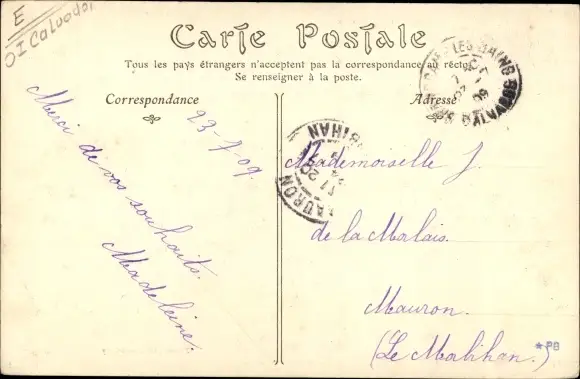 E
01 Calvados
Carte Postale
Tous les pays étrangers n'acceptent pas la correspondance au recto
Se renseigner à la poste.
Correspondance
Adresse
23-7-09
Merci de vos souhaits.
Madeleine.
Mademoiselle J.
de la Malais.
Mauron.
(Le Morbihan.)
MAURON
BIHAN
LES BAINS
CALVADOS
*PB